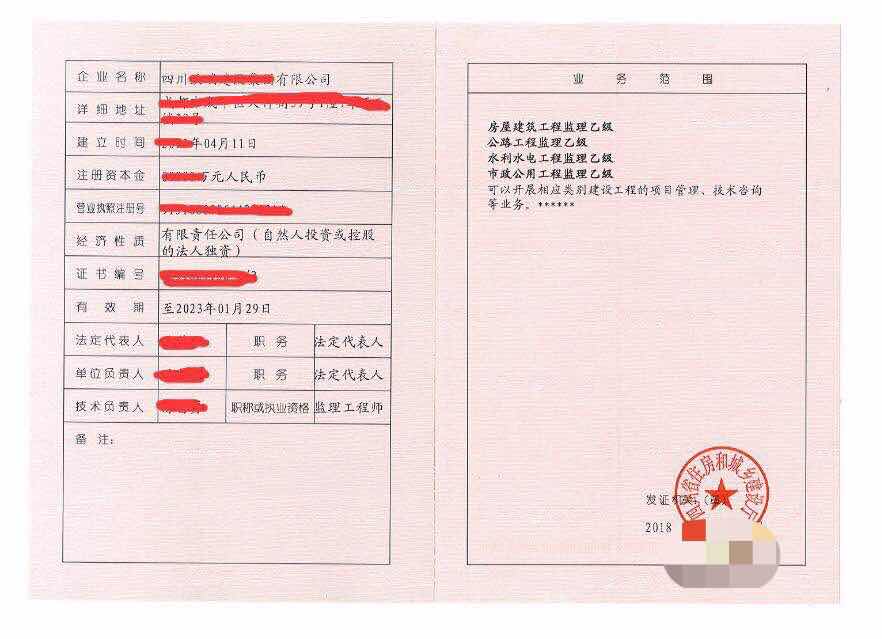 企业名称 四川 有限公司
详细地址
建立时间 年04月11日
注册资本金 万元人民币
营业执照注册号
经济性质 有限责任公司（自然人投资或控股
的法人独资）
证书编号
有效期 至2023年01月29日
法定代表人 职务 法定代表人
单位负责人 职务 法定代表人
技术负责人 职称或执业资格 监理工程师
备注：
业务范围
房屋建筑工程监理乙级
公路工程监理乙级
水利水电工程监理乙级
市政公用工程监理乙级
可以开展相应类别建设工程的项目管理、技术咨询
等业务。******
省住房和城乡建设厅
发证机关：（章）
2018